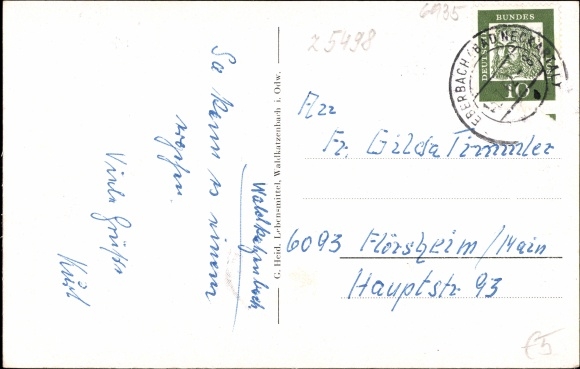 6935
z 5498
DEUTSCHE BUNDESPOST
10
EBERBACH (BADEN) NECKARTAL
So kann es einem
gehen.
Viele Grüße
Kurt
Waldkatzenbach
G. Heid, Lebensmittel, Waldkatzenbach i. Odw.
An
Fr. Gilda Timmler
6093 Flörsheim/Main
Hauptstr 93